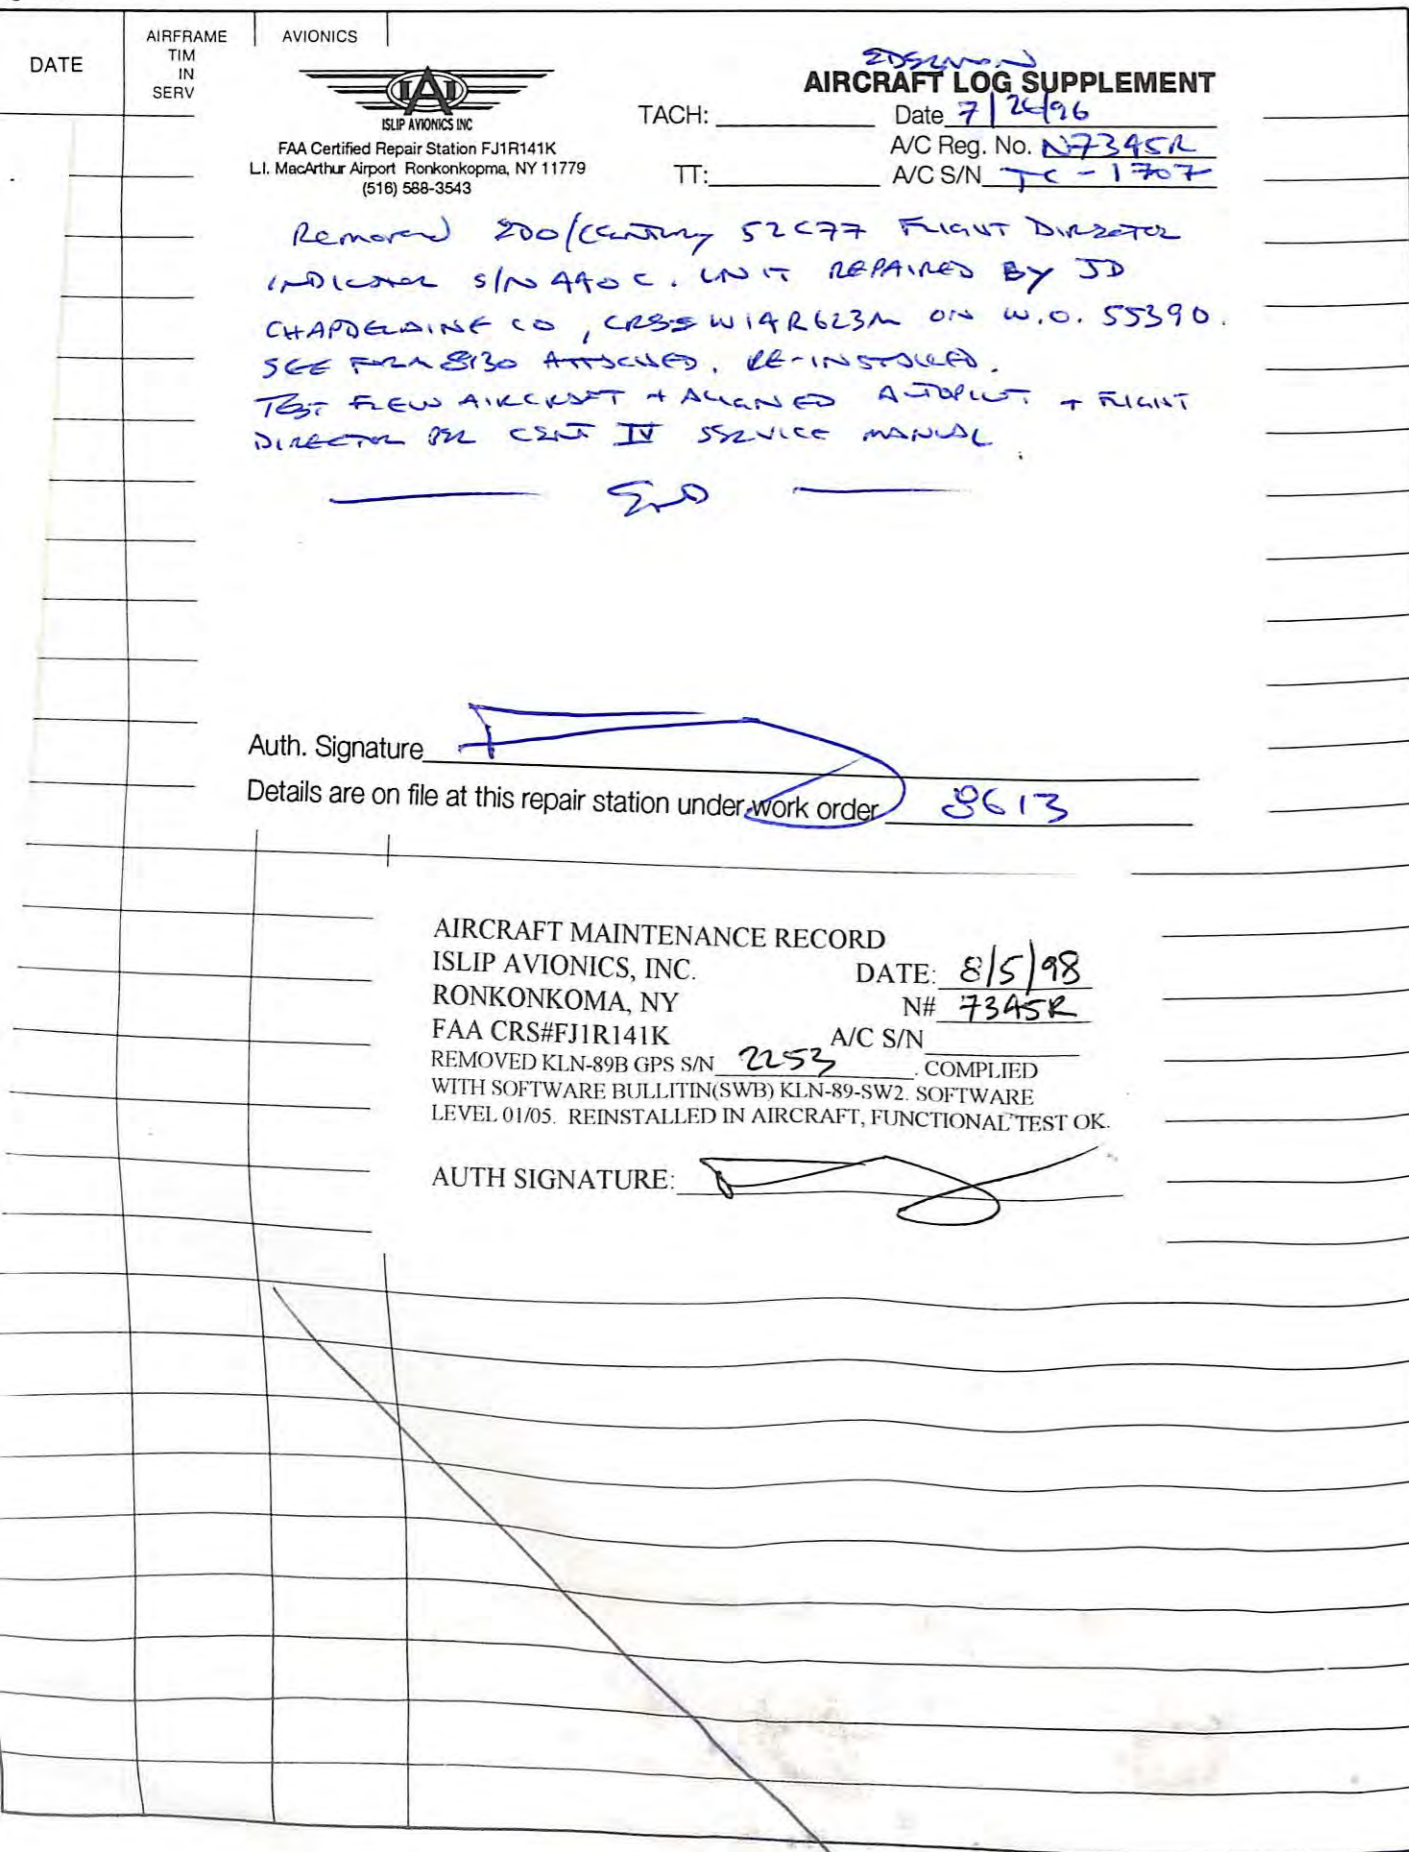 DATE
AIRFRAME
TIM
IN
SERV
AVIONICS
IAI
ISLIP AVIONICS INC
FAA Certified Repair Station FJ1R141K
L.I. MacArthur Airport Ronkonkopma, NY 11779
(516) 588-3543
AIRCRAFT LOG SUPPLEMENT
TACH:
Date 7/26/96
A/C Reg. No. N7345R
TT:
A/C S/N TC-1707
Removed EDO/CENTURY 52C77 FLIGHT DIRECTOR
INDICATOR S/N 440C. UNIT REPAIRED BY JD
CHAPDELAINE CO, CRS# W14R623M ON W.O. 55390.
SEE FORM 8130 ATTACHED. RE-INSTALLED.
TEST FLEW AIRCRAFT + ALIGNED AUTOPILOT + FLIGHT
DIRECTOR PER CENT IV SERVICE MANUAL.
END
Auth. Signature
Details are on file at this repair station under work order 8613
AIRCRAFT MAINTENANCE RECORD
ISLIP AVIONICS, INC. DATE: 8/5/98
RONKONKOMA, NY N# 7345R
FAA CRS#FJ1R141K A/C S/N
REMOVED KLN-89B GPS S/N 2253. COMPLIED
WITH SOFTWARE BULLITIN(SWB) KLN-89-SW2. SOFTWARE
LEVEL 01/05. REINSTALLED IN AIRCRAFT, FUNCTIONAL TEST OK.
AUTH SIGNATURE: